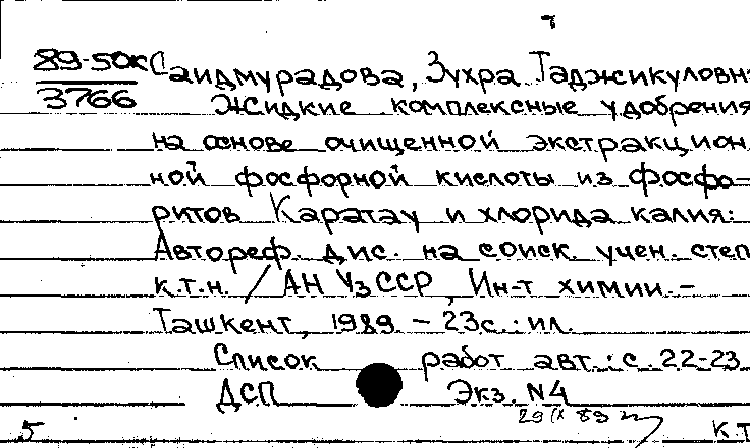 89-50к
3766
Саидмурадова, Зухра Таджикуловн
Жидкие комплексные удобрения
на основе очищенной экстракцион
ной фосфорной кислоты из фосфо-
ритов Каратау и хлорида калия:
Автореф. дис. на соиск. учен. степ
к.т.н. / АН УзССР, Ин-т химии. -
Ташкент, 1989. - 23с.: ил.
Список работ авт.: с. 22-23
ДСП Экз. N4
29 IX 89
5 к.т